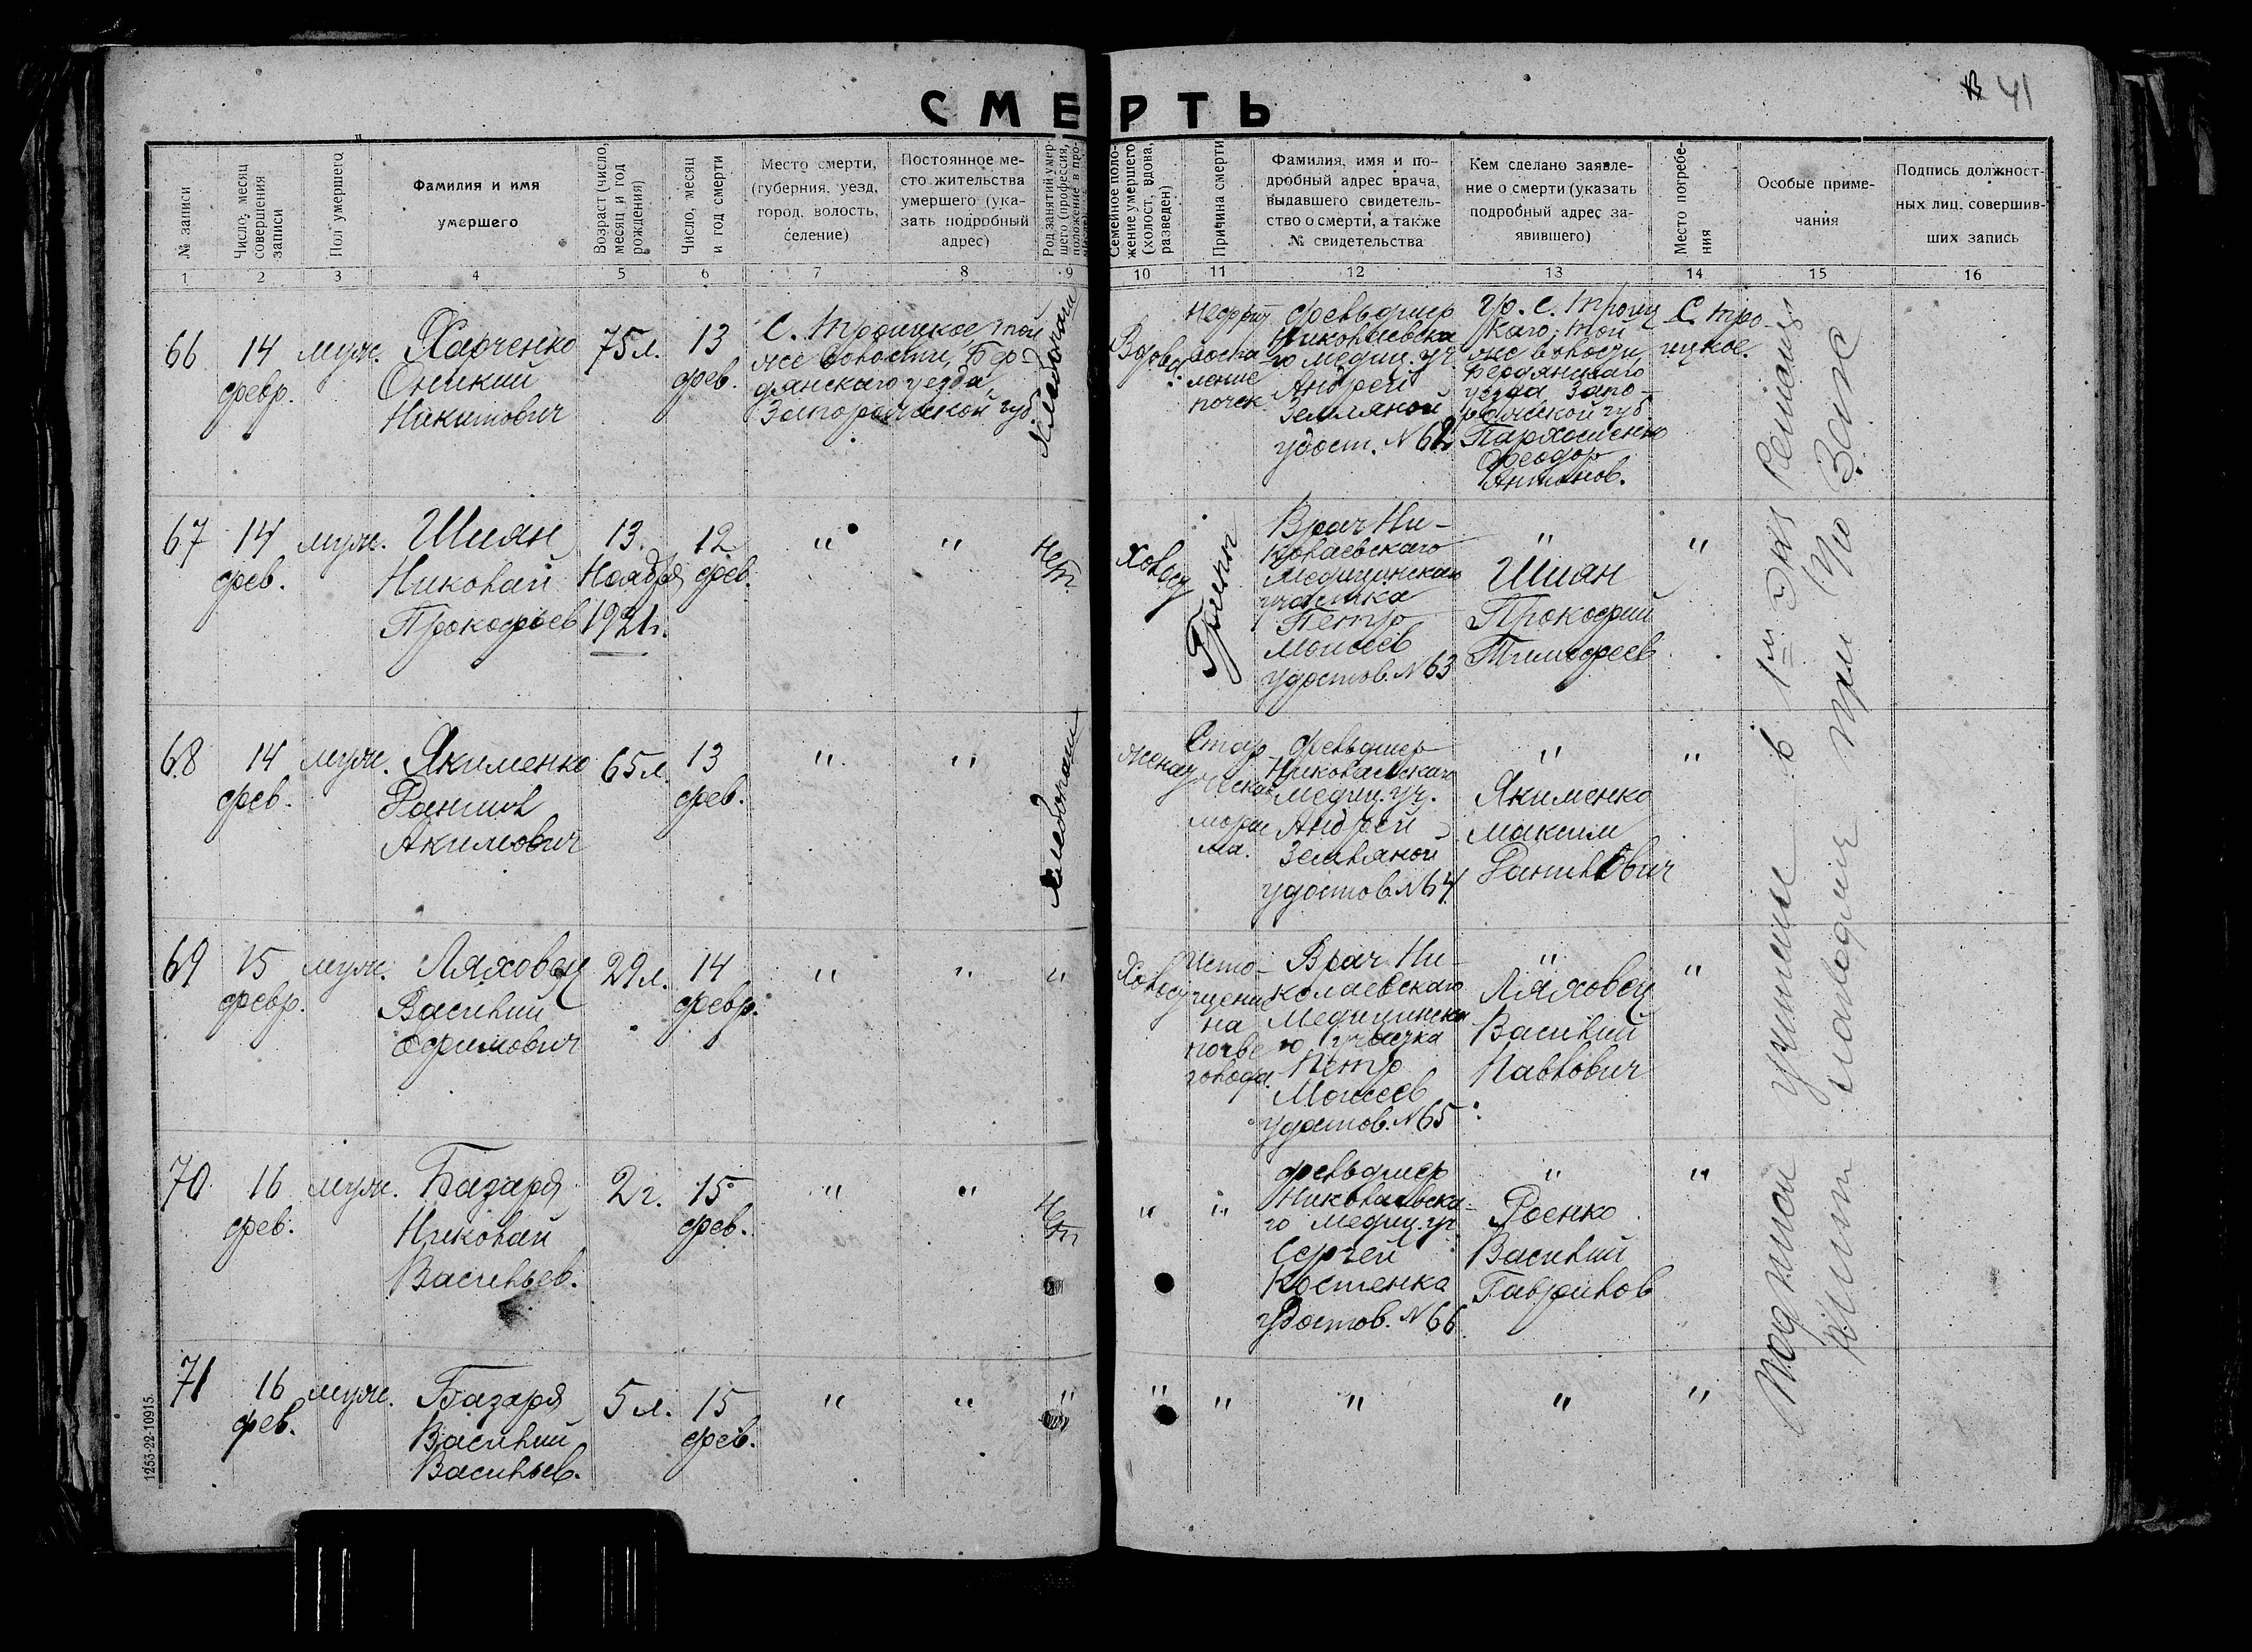 41
СМЕРТЬ
№ записи
Число, месяц совершения записи
Пол умершего
Фамилия и имя умершего
Возраст (число, месяц и год рождения)
Число, месяц и год смерти
Место смерти, (губерния, уезд, город, волость, селение)
Постоянное место жительства умершего (указать подробный адрес)
Род занятий умершего (профессия, положение в про-
Семейное положение умершего (холост, вдова, разведен)
Причина смерти
Фамилия, имя и подробный адрес врача, выдавшего свидетельство о смерти, а также № свидетельства
Кем сделано заявление о смерти (указать подробный адрес заявившего)
Место погребения
Особые примечания
Подпись должностных лиц, совершивших запись
1 2 3 4 5 6 7 8 9 10 11 12 13 14 15 16
66
14
февр.
муж.
Харченко
Оникий
Никитович
75 л.
13
фев.
С. Троицкое, той
же волости, Бер-
дянского уезда,
Запорожской губ.
Хлебопаш
Вдовец
воспа
ление
почек.
фельдшер
Николаевска
го медиц. уч.
Андрей
Земляной
удост. № 62
гр. с. Троиц
каго, той
же волости,
Бердянского
уезда Запо-
рожской губ.
Пархоменко
Феодор
Антонов.
С. Тро-
ицкое.
67
14
фев.
муж.
Шиян
Николай
Прокофьев
13
Ноября
1921 г.
12
фев.
"
"
Нет
Холост
Врач Ни-
колаевского
Медицинскаго
участка
Петр
Моисеев
удостов. № 63
"
Шиян
Прокофий
Тимофеев
"
68
14
фев.
муж.
Якименко
Данил
Акимович
65 л.
13
фев.
"
"
Хлебопаш
женат
Стар
ческая
фельдшер
Николаевскаго
медиц. уч.
Андрей
Земляной
удостов № 64
"
Якименко
Максим
Данилович
"
69
15
февр.
муж.
Ляховец
Василий
Ефимович
29 л.
14
февр.
"
"
"
Холост
Исто-
щение
на
почве
голода.
Врач Ни-
колаевскаго
Медицинска
го участка
Петр
Моисеев
удостов. № 65
"
Ляховец
Василий
Павлович
"
70
16
фев.
муж.
Базаря
Николай
Васильев.
2 г.
15
фев.
"
"
Нет
"
"
фельдшер
Николаевска-
го медиц. уч.
Сергей
Костенка
удостов. № 66
"
Роенко
Василий
Гаврилов
"
71
16
фев.
муж.
Базаря
Василий
Васильев.
5 л.
15
фев.
"
"
"
"
"
"
"
"
1253-22-10915.